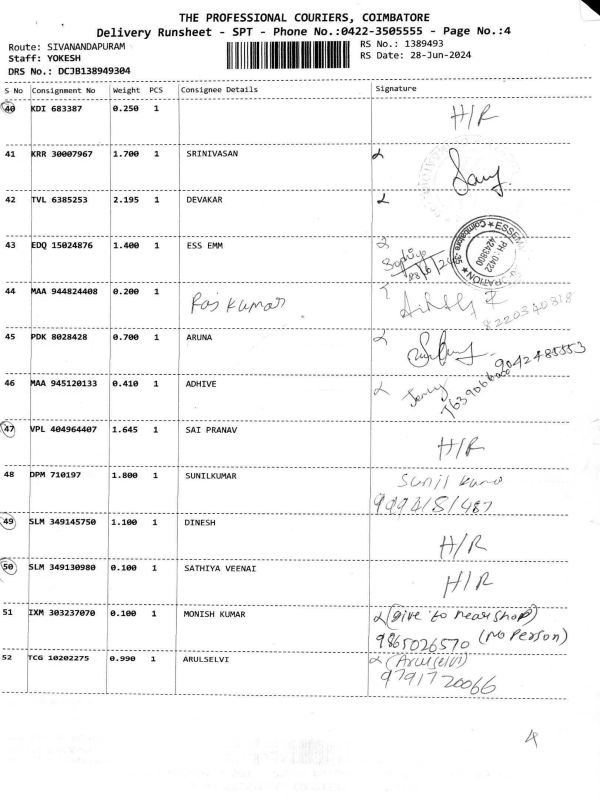 THE PROFESSIONAL COURIERS, COIMBATORE
Delivery Runsheet - SPT - Phone No.:0422-3505555 - Page No.:4
Route: SIVANANDAPURAM
RS No.: 1389493
Staff: YOKESH
RS Date: 28-Jun-2024
DRS No.: DCJB138949304
S No Consignment No Weight PCS Consignee Details Signature
40 KDI 683387 0.250 1 H/R
41 KRR 30007967 1.700 1 SRINIVASAN
42 TVL 6385253 2.195 1 DEVAKAR
43 EDQ 15024876 1.400 1 ESS EMM
44 MAA 944824408 0.200 1 Raj Kumar
8220340318
45 PDK 8028428 0.700 1 ARUNA
9042485553
46 MAA 945120133 0.410 1 ADHIVE
47 VPL 404964407 1.645 1 SAI PRANAV
H/R
48 DPM 710197 1.800 1 SUNILKUMAR
49 SLM 349145750 1.100 1 DINESH
H/R
50 SLM 349130980 0.100 1 SATHIYA VEENAI
H/R
51 IXM 303237070 0.100 1 MONISH KUMAR (give to near shop)
9865026570 (No Person)
52 TCG 10202275 0.990 1 ARULSELVI (Arulselvi)
9791720066
4